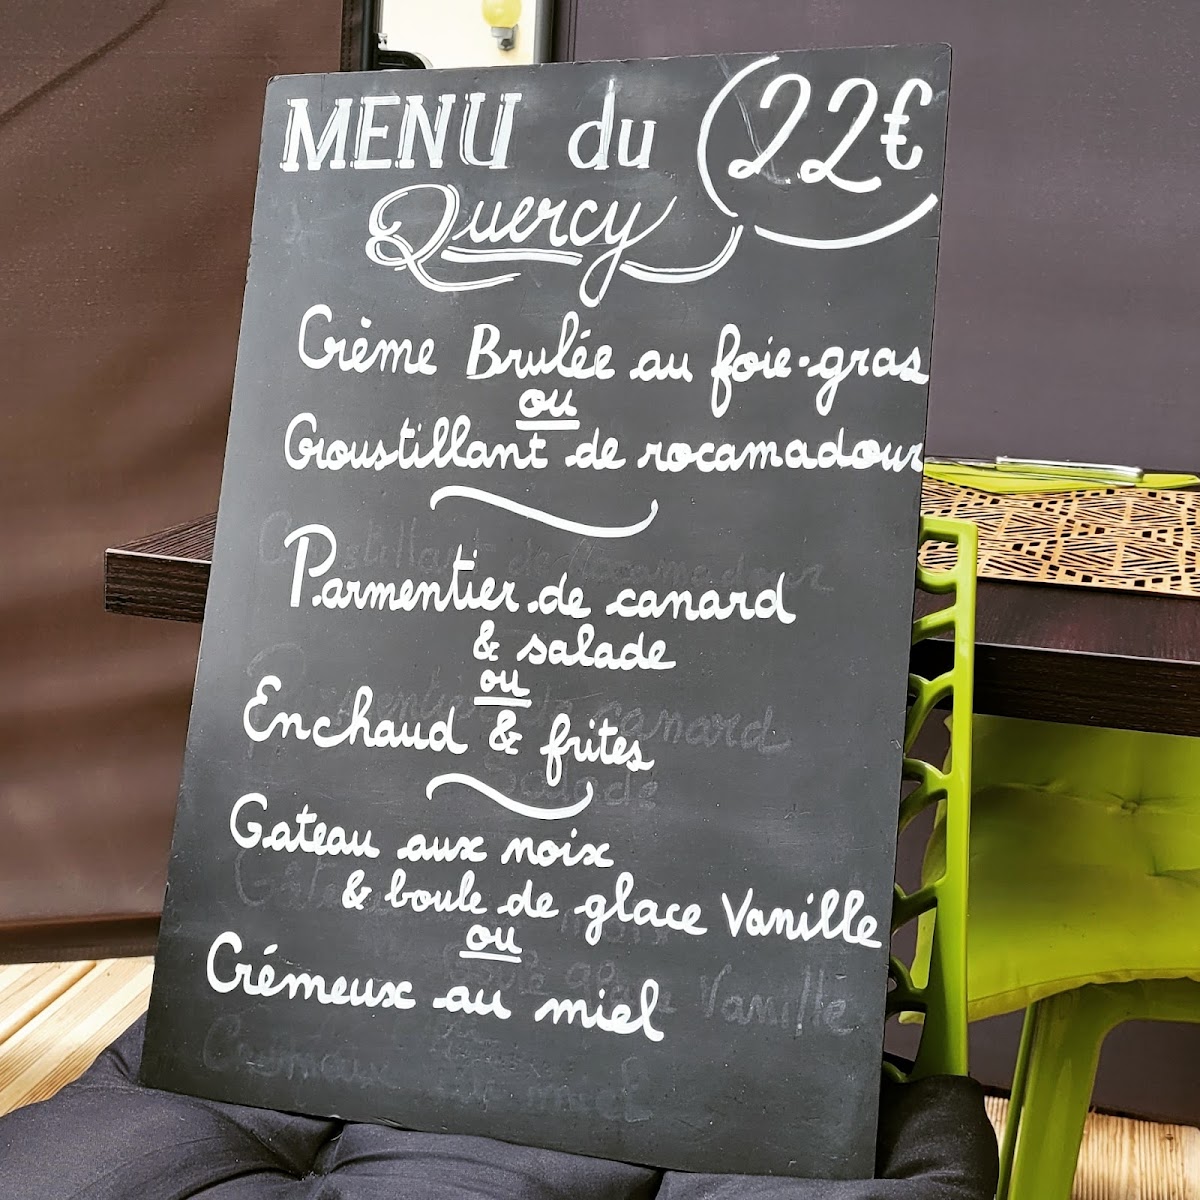 MENU du 22€
Quercy
Crème Brulée au foie-gras
ou
Croustillant de rocamadour
Parmentier de canard
& salade
ou
Enchaud & frites
Gateau aux noix
& boule de glace Vanille
ou
Crémeux au miel